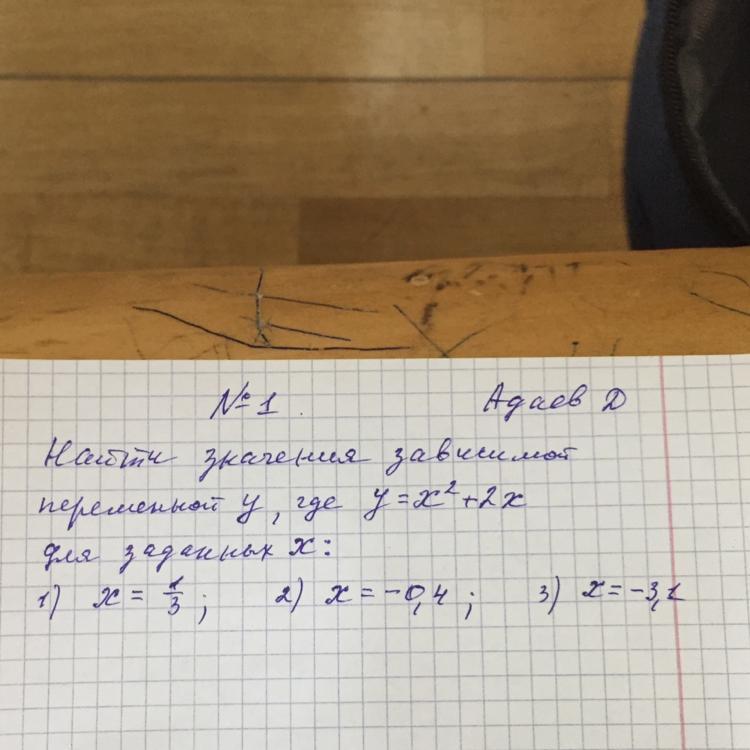 №1. Адаев Д
Найти значения зависимой
переменной y, где y=x²+2x
для заданных x:
1) x = 1/3; 2) x = -0,4; 3) x = -3,1